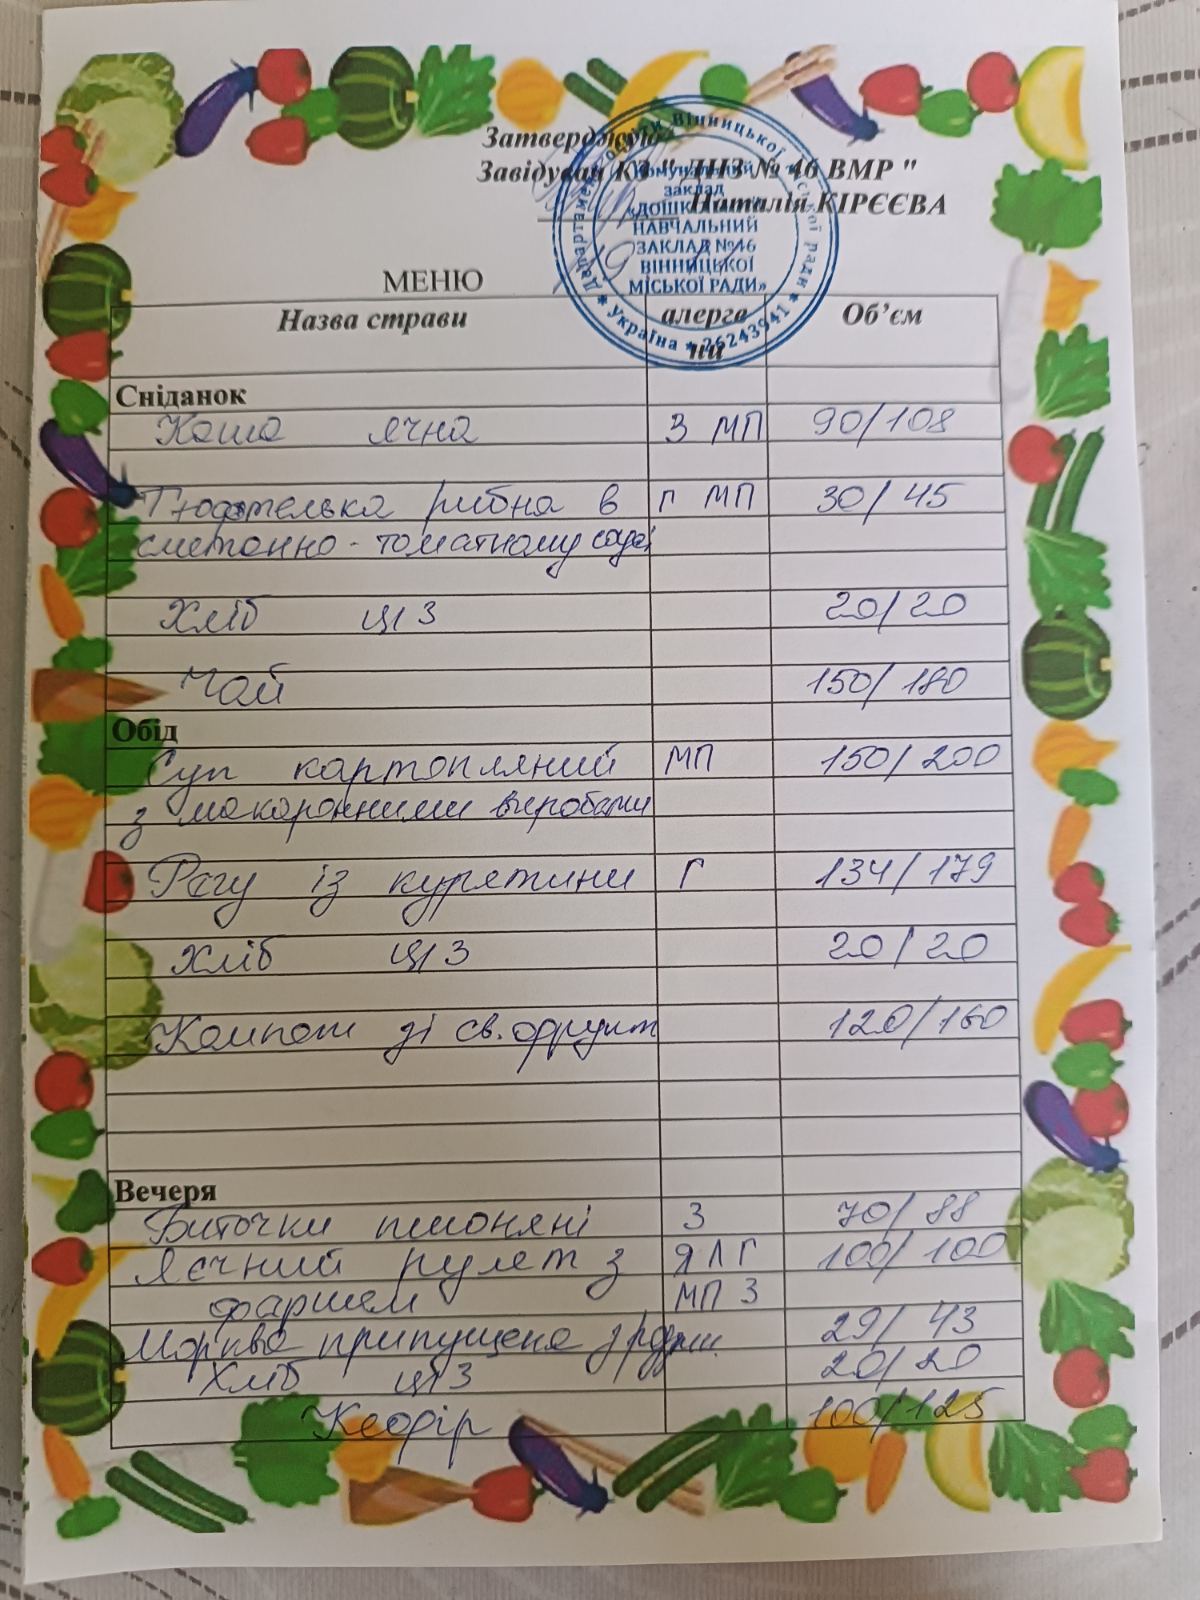 Затверджую
Завідувач КЗ " ДНЗ № 46 ВМР "
Наталія КІРЄЄВА
Департамент освіти Вінницької міської ради * Україна * 26243941 *
Комунальний
заклад
«ДОШКІЛЬНИЙ
НАВЧАЛЬНИЙ
ЗАКЛАД №46
ВІННИЦЬКОЇ
МІСЬКОЇ РАДИ»
МЕНЮ
Назва страви алерге Об’єм
ни
Сніданок
Каша ячна З МП 90/108
Тюфтелька рибна в Г МП 30/45
сметанно-томатному соусі
Хліб ц/з 20/20
Чай 150/180
Обід
Суп картопляний МП 150/200
з макаронними виробами
Рагу із курятини Г 134/179
Хліб ц/з 20/20
Компот зі св. фрукт 120/160
Вечеря
Биточки пшоняні З 70/88
Яєчний рулет з Я Л Г 100/100
фаршем МП З
Морква припущена з 29/43
Хліб ц/з 20/20
Кефір 100/125